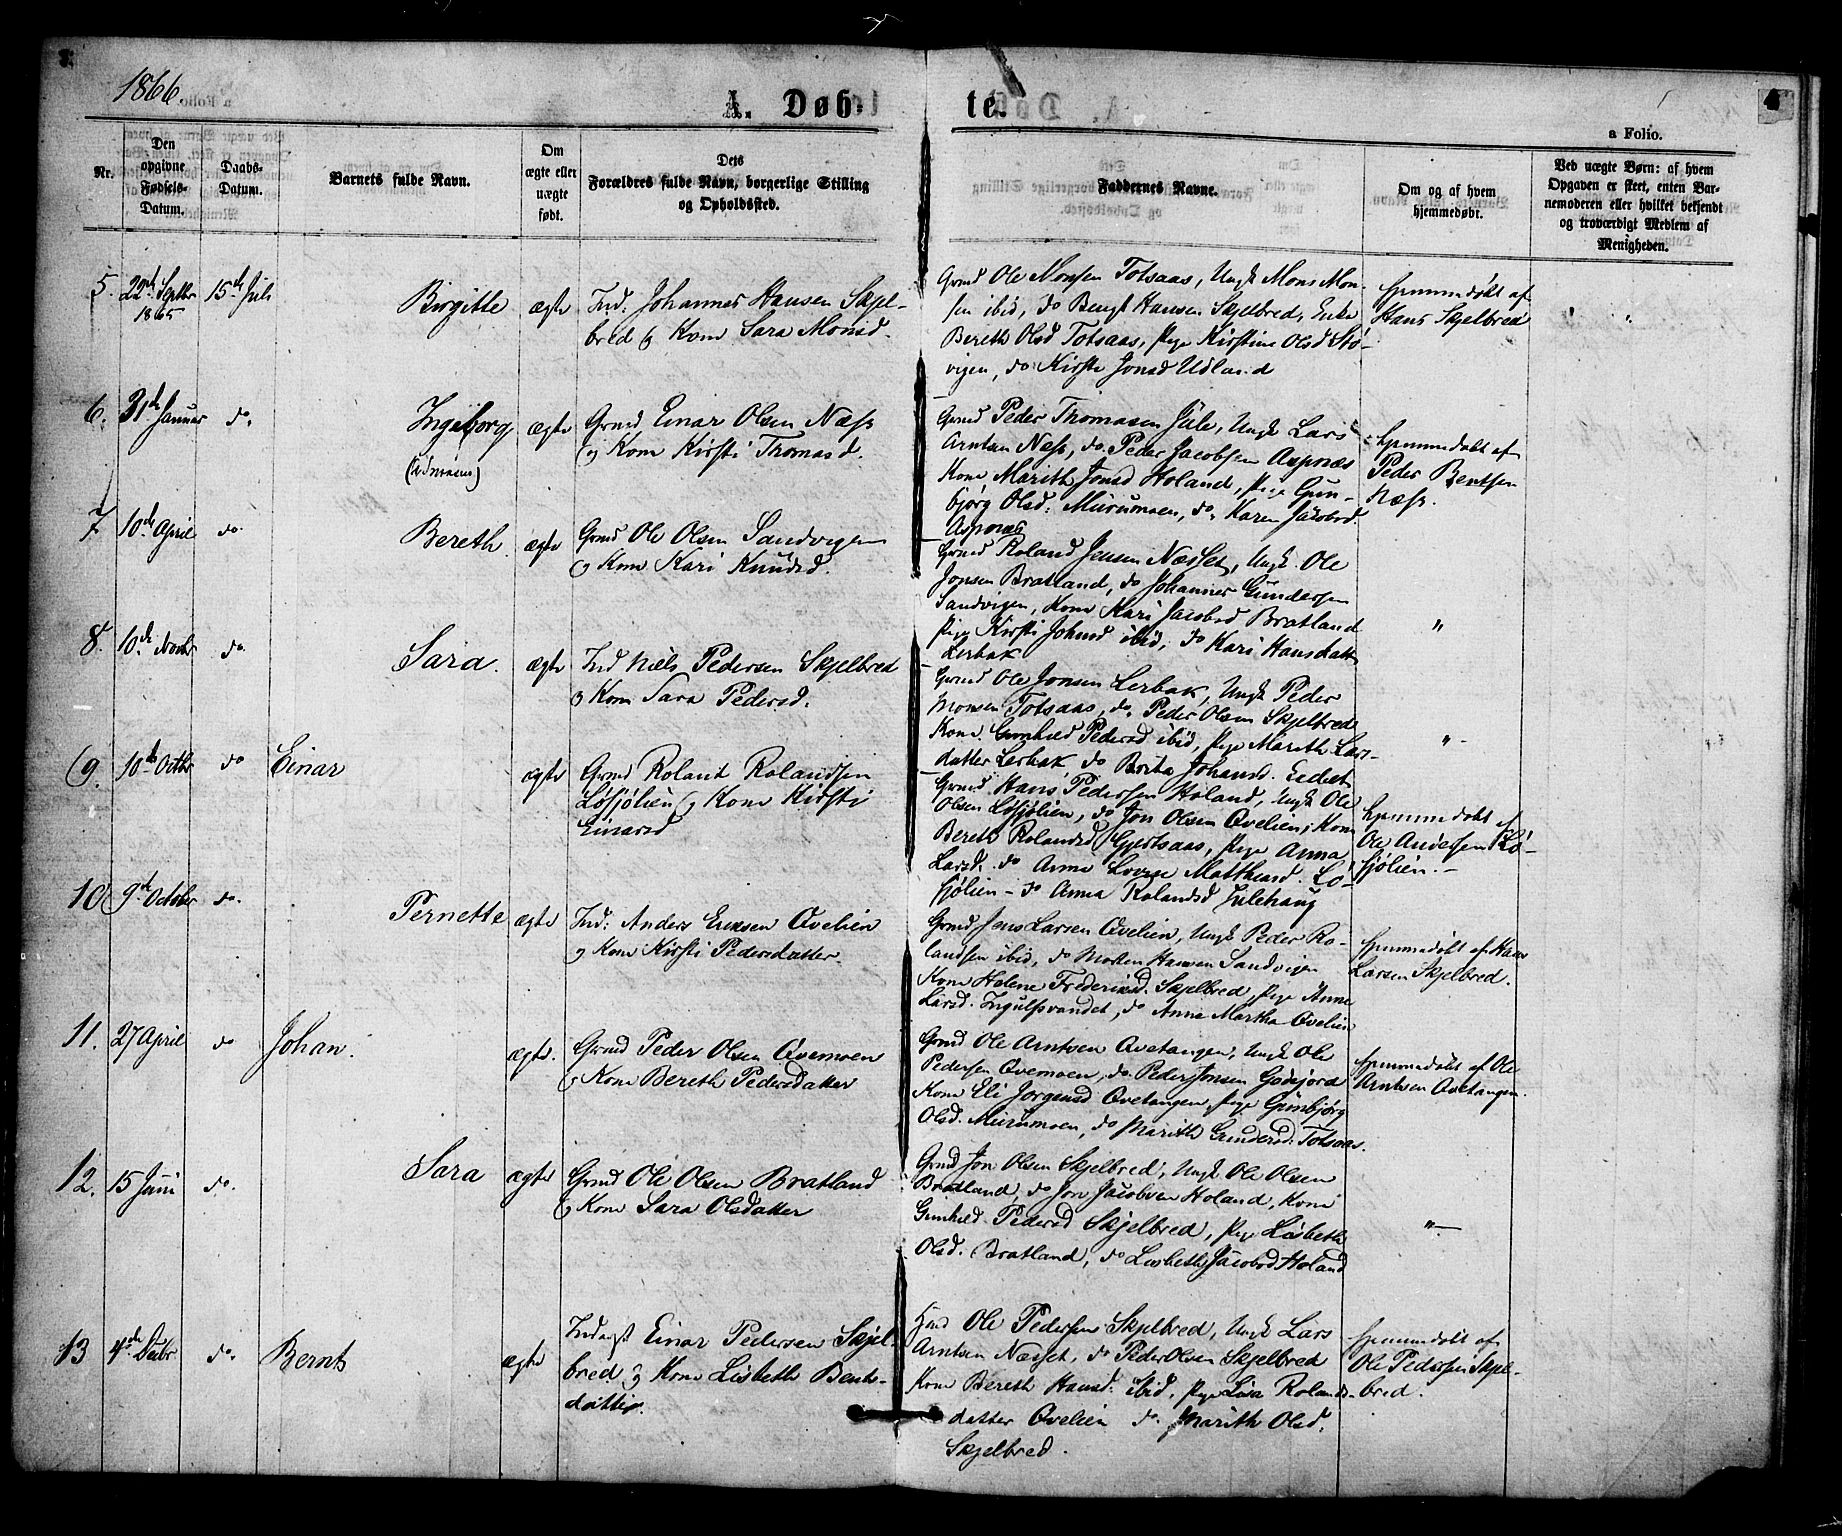 1866.
A. Døb-
te.
4
a Folio.
Nr.
Den
opgivne
Fødsels-
Datum.
Daabs-
Datum.
Barnets fulde Navn.
Om
ægte eller
uægte
født.
Dets
Forældres fulde Navn, borgerlige Stilling
og Opholdssted.
Faddernes Navne.
Om og af hvem
hjemmedøbt.
Ved uægte Børn: af hvem
Opgaven er skeet, enten Bar-
nemoderen eller hvilket bekjendt
og troværdigt Medlem af
Menigheden.
5. 22de Septbr 15de Juli Birgitte ægte Ind. Johannes Hansen Skjel-
1865
bred og Kone Sara Monsd.
Grmd Ole Monsen Totsaas, Ungk Mons Mon-
sen ibid, do Bengt Hansen Skjelbred, Enke
Bereth Olsd Totsaas, Pige Kirstine Olsd Stø-
vigen, do Kirsti Jonsd Udland
hjemmedøbt af
Hans Skjelbred
" "
6. 31de Januar do. Ingeborg ægte Grmd Einar Olsen Næss
og Kone Kirsti Thomasd.
Grmd Peder Thomasen Jule, Ungk Lars
Arntsen Næss, do. Peder Jacobsen Aspnæs
Kone Marith Jonsd Holand, Pige Gun-
bjørg Olsd. Murumoen, do. Karen Jacobsd.
Aspnæs
hjemmedøbt af
Peder Bentsen
Næss.
7 10de April do. Bereth. ægte Grmd Ole Olsen Sandvigen
og Kone Kari Knudsd.
Grmd Roland Jensen Næsset, Ungk. Ole
Jonsen Bratland, do Johannes Gundersen
Sandvigen, Kone Kari Jacobsd Bratland
Pige Kirsti Johnsd ibid, do Kari Hansdatt
Lerbak
"
8. 10de Novbr do. Sara. ægte Ind Niels Pedersen Skjelbred
og Kone Sara Pedersd.
Grmd Ole Jonsen Lerbak, Ungk Peder
Monsen Totsaas, do. Peder Olsen Skjelbred
Kone. Gunhild Pedersd ibid, Pige Marith Lars-
datter Lerbak do Brita Johansd.
"
9. 10de Octbr do Einar ægte Grmd Roland Rolandsen
Løsjølien og Kone Kirsti
Einarsd
Grmd. Hans Pedersen Holand, Ungk Ole
Olsen Løsjølien, do Jon Olsen Qvelien, Kone
Bereth Rolandsd Gjertsaas, Pige Anna
Larsd. do Anne Lovise Matthiasd. Lø-
sjølien - do Anna Rolandsd Julehaug
hjemmedøbt af
Ole Andersen Lø-
sjølien. -
10 9de October do. Pernette ægte Ind: Anders Eriksen Qvelien
og Kone Kirsti Pedersdatter.
Grmd Jens Larsen Qvelien, Ungk Peder Ro-
landsen ibid, do Morten Hansen Sandvigen
Kone Helene Frederiksd. Skjelbred, Pige Anne
Larsd. Ingulfsvandet, do Anne Martha Qvelien
hjemmedøbt af Hans
Larsen Skjelbred.
11. 27 April do Johan. ægte. Grmd Peder Olsen Qvemoen
og Kone Bereth Pedersdatter
Grmd Ole Arntsen Qvetangen, Ungk Ole
Pedersen Qvemoen, do. Peder Jonsen Godejord
Kone Eli Jørgensd Qvetangen, Pige Gunbjørg
Olsd. Murumoen, do Marith Gundersd. Totsaas.
hjemmedøbt af Ole
Arntsen Qvetangen.
12. 15 Juni do. Sara ægte Grmd Ole Olsen Bratland
og Kone Sara Olsdatter
Grmd Jon Olsen Skjelbred, Ungk Ole Olsen
Bratland, do Jon Jacobsen Holand, Kone
Gunhild. Pedersd Skjelbred, Pige Lisbeth
Olsd. Bratland, do Lisbeth Jacobsd Holand
"
13 4de Decbr do. Bernt ægte Inderst Einar Pedersen Skjel-
bred og Kone Lisbeth Bents-
datter.
Ole Pedersen Skjelbred, Ungk Lars
Arntsen Næsset, do Peder Olsen Skjelbred
Kone Bereth Hansd. ibid, Pige Lisa Rolands-
datter Qvelien do. Marith Olsd.
Skjelbred.
hjemmedøbt af
Ole Pedersen Skjel-
bred.